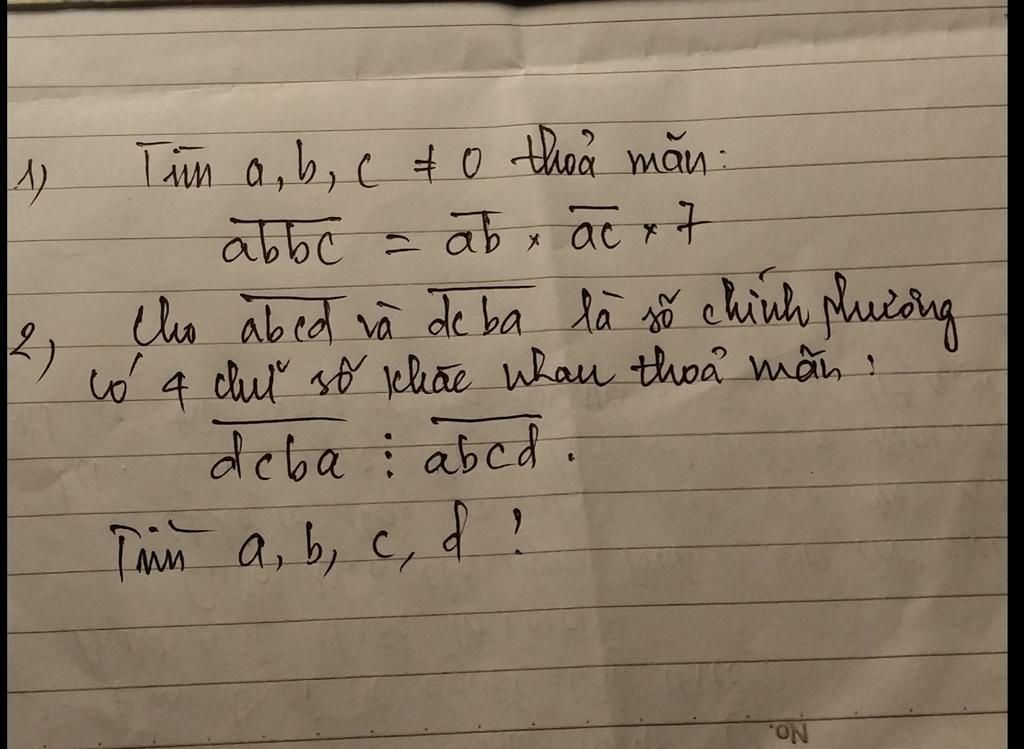 1) Tìm a, b, c ≠ 0 thoả mãn:
abbc = ab × ac × 7
2) Cho abcd và dcba là số chính phương
có 4 chữ số khác nhau thoả mãn:
dcba ⋮ abcd.
Tìm a, b, c, d !
No.